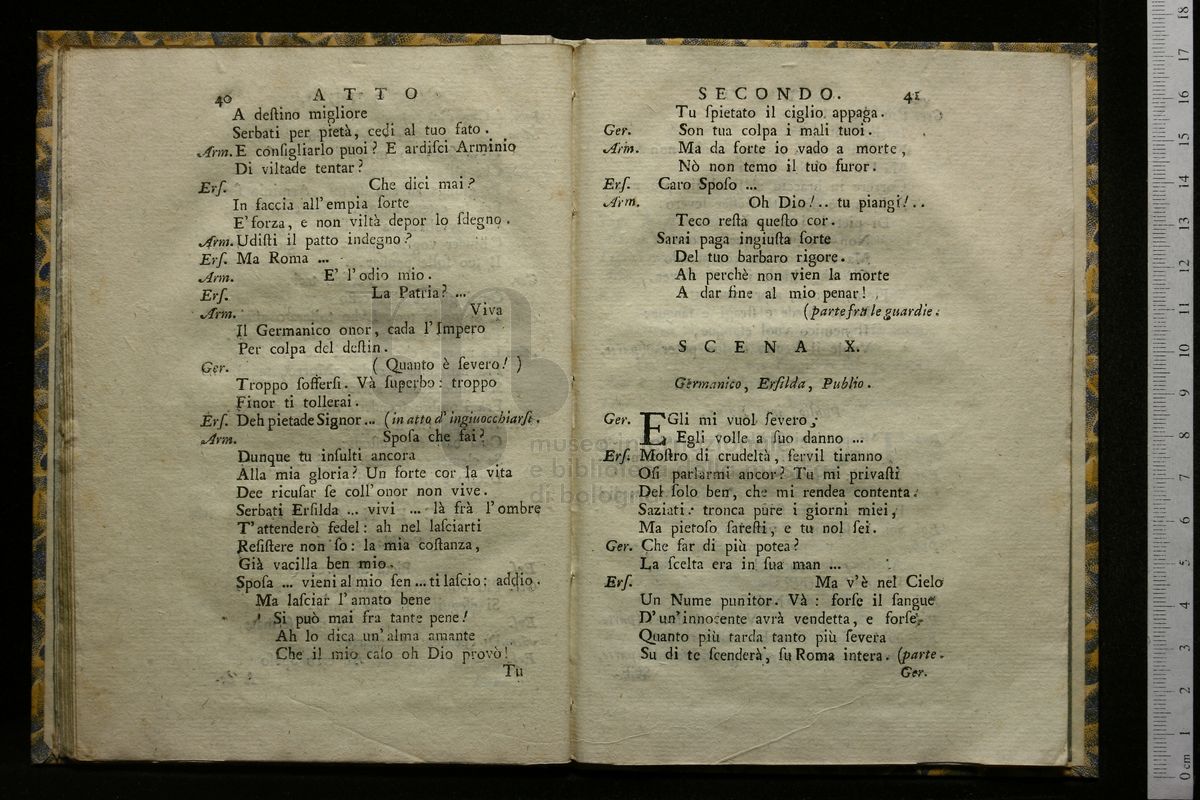 40 ATTO
A deſtino migliore
Serbati per pietà, cedi al tuo fato.
Arm. E conſigliarlo puoi? E ardiſci Arminio
Di viltade tentar?
Erſ. Che dici mai?
In faccia all'empia ſorte
E' forza, e non viltà depor lo ſdegno.
Arm. Udiſti il patto indegno?
Erſ. Ma Roma ...
Arm. E' l'odio mio.
Erſ. La Patria? ...
Arm. Viva
Il Germanico onor, cada l'Impero
Per colpa del deſtin.
Ger. ( Quanto è ſevero! )
Troppo ſofferſi. Và ſuperbo: troppo
Finor ti tollerai.
Erſ. Deh pietade Signor ... (in atto d'ingiuocchiarſi.
Arm. Spoſa che fai?
Dunque tu inſulti ancora
Alla mia gloria? Un forte cor la vita
Dee ricuſar ſe coll'onor non vive.
Serbati Erſilda ... vivi ... là frà l'ombre
T'attenderò fedel: ah nel laſciarti
Reſiſtere non ſo: la mia coſtanza,
Già vacilla ben mio.
Spoſa ... vieni al mio ſen ... ti laſcio: addio.
Ma laſciar l'amato bene
Si può mai fra tante pene!
Ah lo dica un'alma amante
Che il mio caſo oh Dio provò!
Tu
SECONDO. 41
Tu ſpietato il ciglio appaga.
Ger. Son tua colpa i mali tuoi.
Arm. Ma da forte io vado a morte,
Nò non temo il tuo furor.
Erſ. Caro Spoſo ...
Arm. Oh Dio!.. tu piangi!..
Teco reſta queſto cor.
Sarai paga ingiuſta ſorte
Del tuo barbaro rigore.
Ah perchè non vien la morte
A dar fine al mio penar!
(parte frà le guardie.
SCENA X.
Germanico, Erſilda, Publio.
Ger. EGli mi vuol ſevero,
Egli volle a ſuo danno ...
Erſ. Moſtro di crudeltà, ſervil tiranno
Oſi parlarmi ancor? Tu mi privaſti
Del ſolo ben, che mi rendea contenta.
Saziati: tronca pure i giorni miei,
Ma pietoſo ſareſti, e tu nol ſei.
Ger. Che far di più potea?
La ſcelta era in ſua man ...
Erſ. Ma v'è nel Cielo
Un Nume punitor. Và: forſe il ſangue
D'un'innocente avrà vendetta, e forſe,
Quanto più tarda tanto più ſevera
Su di te ſcenderà, ſu Roma intera. (parte.
Ger.